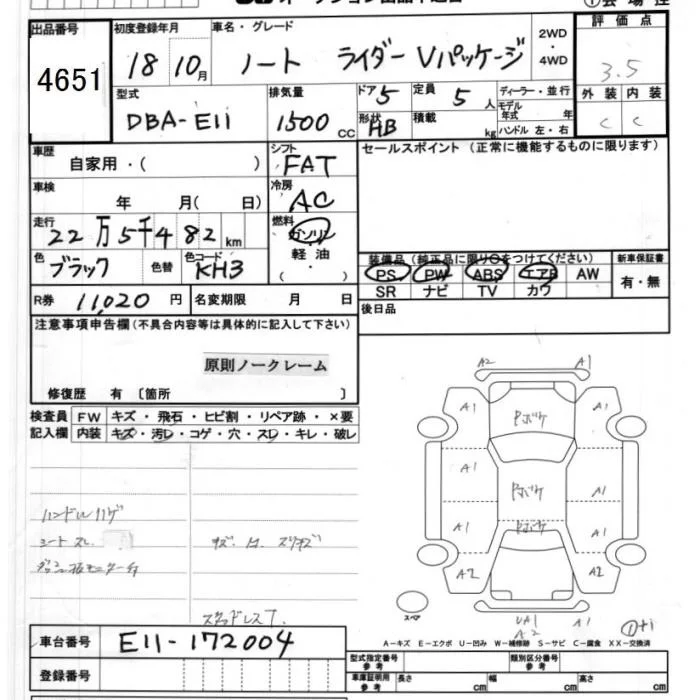 出品番号 初度登録年月 車名・グレード 評価点
4651 18 10月 ノート ライダー Vパッケージ 2WD・4WD 3.5
型式 排気量 ドア 5 定員 5人 ディーラー・並行 外装 内装
DBA-E11 1500cc 形状 HB 積載 kg モデル年式 年 ハンドル 左・右 C C
車歴 シフト セールスポイント(正常に機能するものに限ります)
自家用・( ) FAT
車検 冷房
年 月( 日) AC
走行 燃料
22万5千482km ガソリン 軽油・( ・ )
色 色替 色コード 装備品(純正品に限り○をつけてください) 新車保証書
ブラック KH3 PS PW ABS エアB AW 有・無
SR ナビ TV カワ
R券 11,020円 名変期限 月 日 後日品
注意事項申告欄(不具合内容等は具体的に記入して下さい)
原則ノークレーム
修復歴 有〔箇所 〕
検査員 FW キズ・飛石・ヒビ割・リペア跡・×要
記入欄 内装 キズ・汚レ・コゲ・穴・スレ・キレ・破レ
A2 A1
A1 Pボケ A1
A1 Pボケ A1
A1 Pボケ A1
A2 A2
ハンドルハゲ
シートスレ
スタッドレスT
スペア UA1 A1
A2
A-キズ E-エクボ U-凹み W-補修跡 S-サビ C-腐食 XX-交換済
車台番号 E11-172004
型式指定番号 参考 類別区分番号 参考
登録番号 車庫証明用 参考 長さ cm 幅 cm 高さ cm